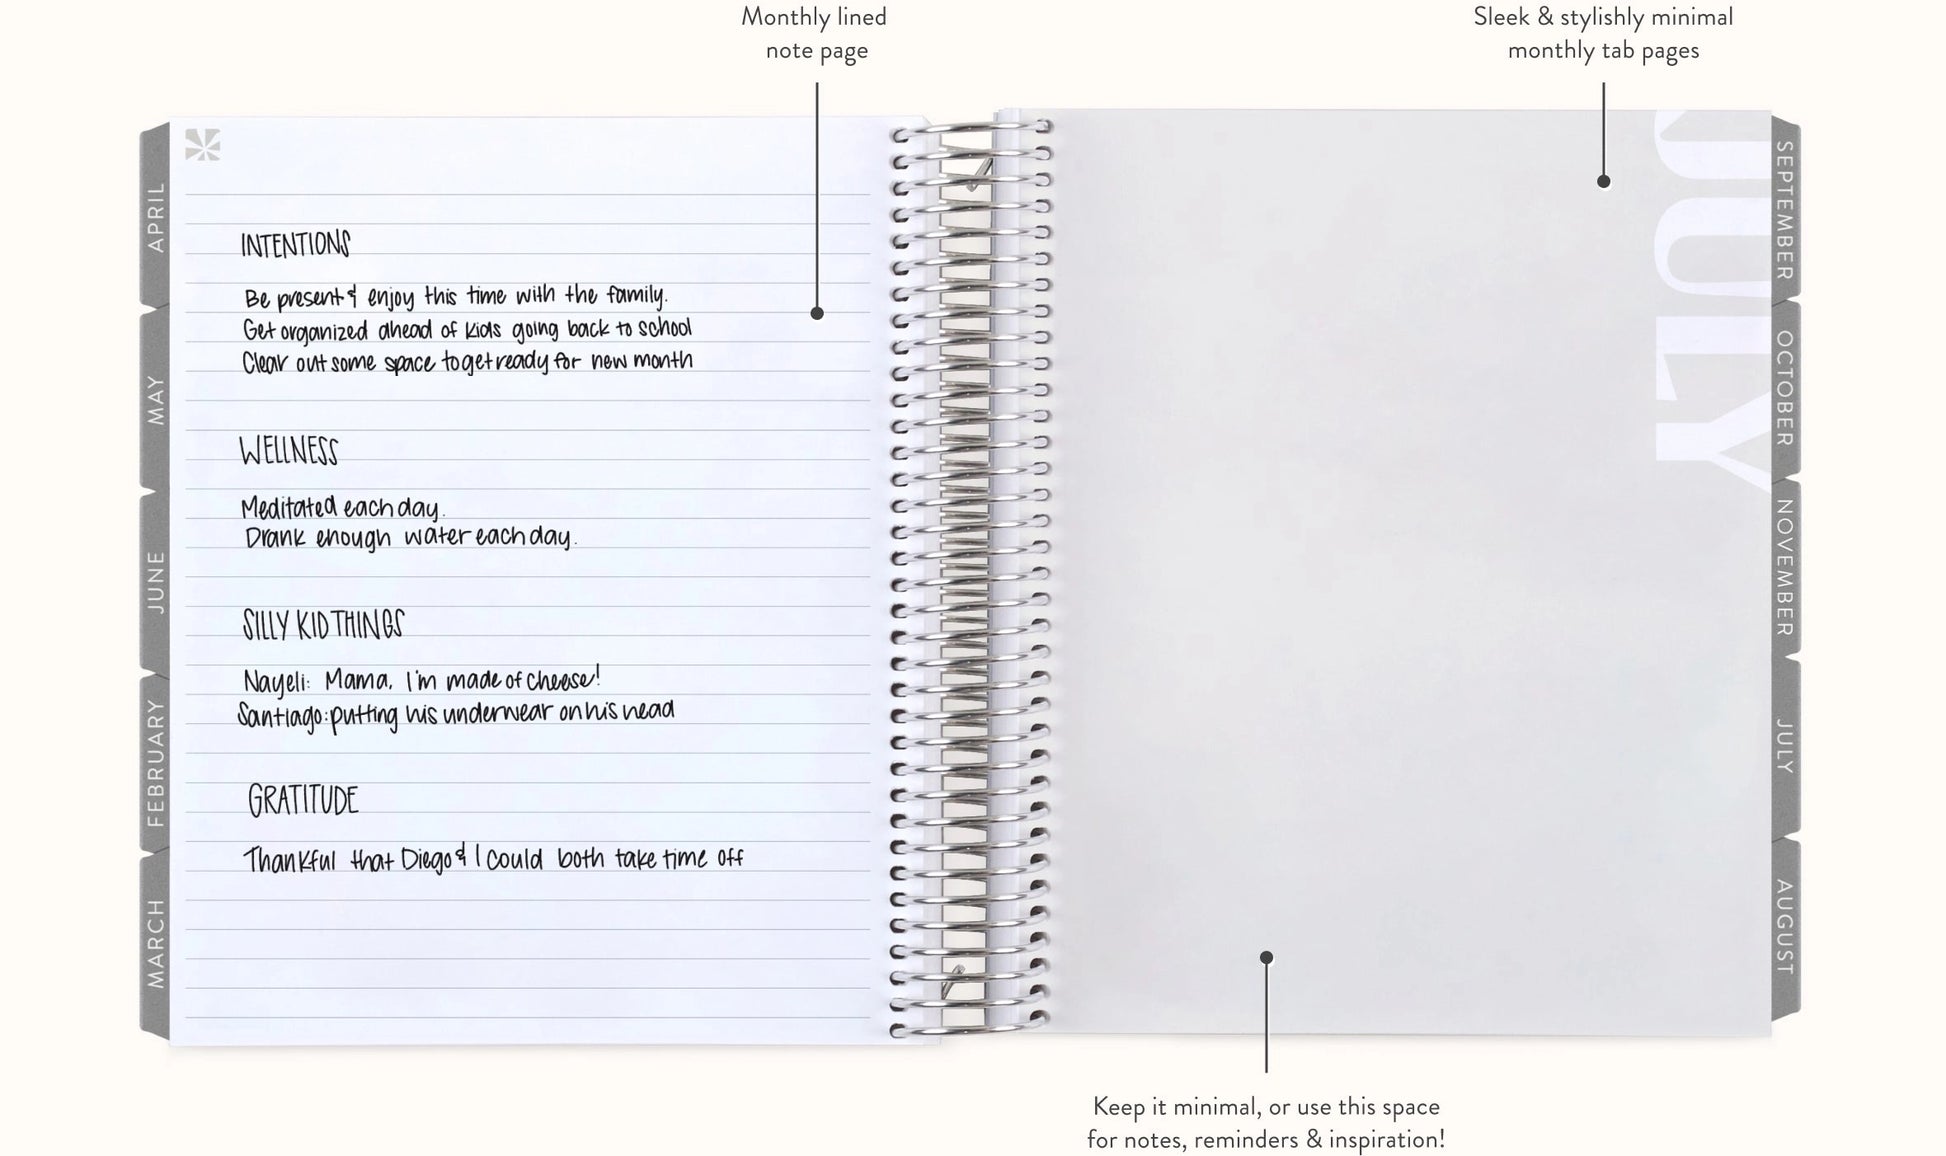 Monthly lined
note page
Sleek & stylishly minimal
monthly tab pages
APRIL
MAY
JUNE
FEBRUARY
MARCH
INTENTIONS
Be present & enjoy this time with the family.
Get organized ahead of kids going back to school
Clear out some space to get ready for new month
WELLNESS
Meditated each day.
Drank enough water each day.
SILLY KID THINGS
Nayeli: Mama, I'm made of cheese!
Santiago: putting his underwear on his head
GRATITUDE
Thankful that Diego & I could both take time off
JULY
SEPTEMBER
OCTOBER
NOVEMBER
JULY
AUGUST
Keep it minimal, or use this space
for notes, reminders & inspiration!